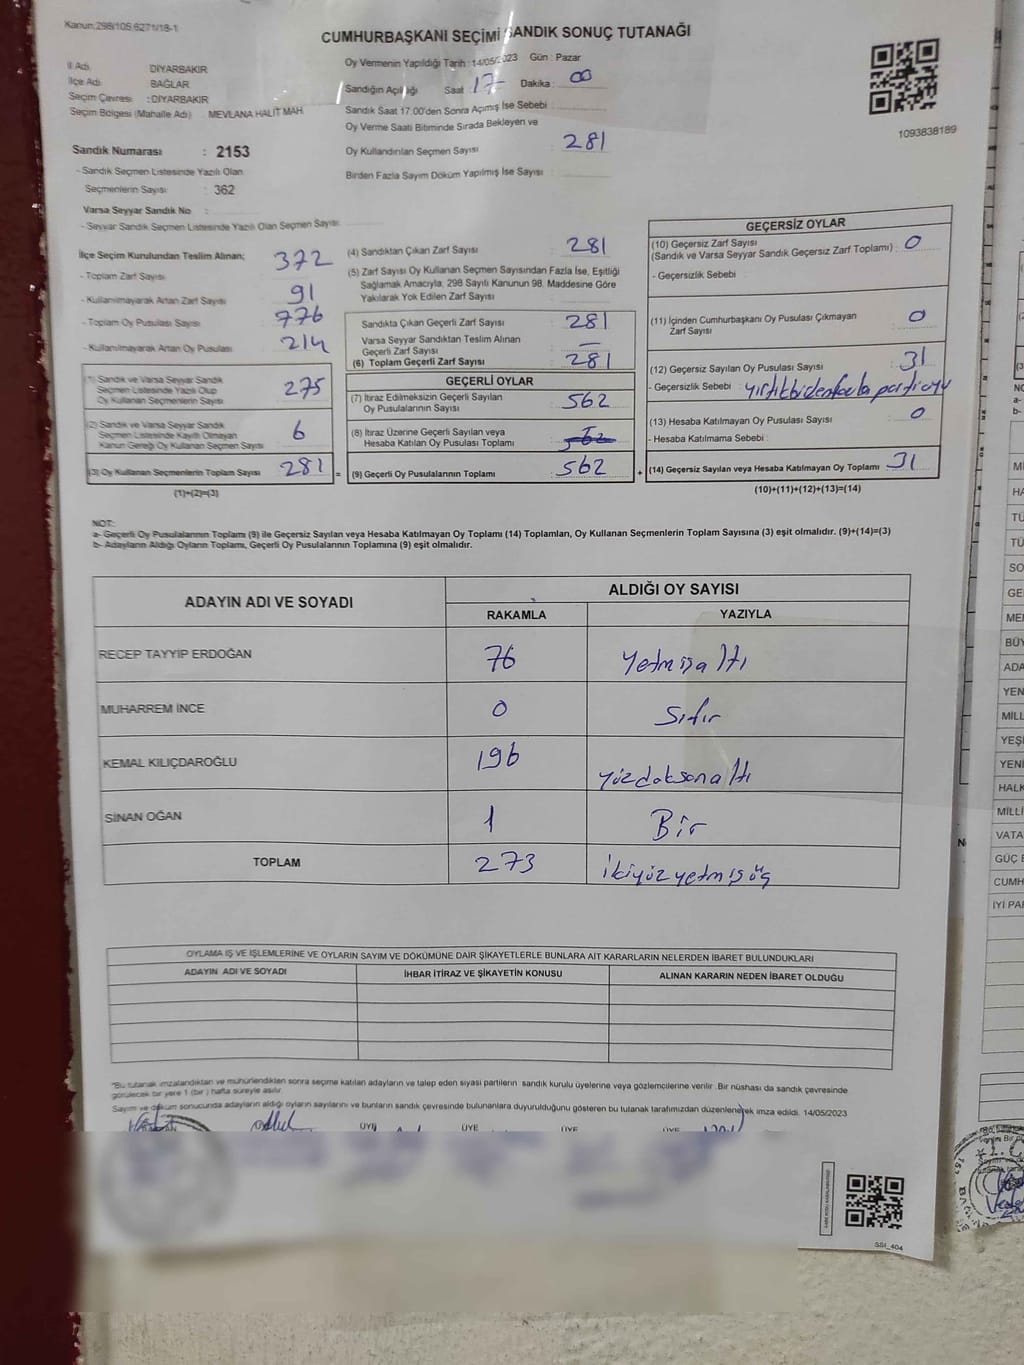 Kanun:298/105,6271/18-1
CUMHURBAŞKANI SEÇİMİ SANDIK SONUÇ TUTANAĞI
İl Adı: DİYARBAKIR
İlçe Adı: BAĞLAR
Seçim Çevresi : DİYARBAKIR
Seçim Bölgesi (Mahalle Adı) MEVLANA HALİT MAH.
Oy Vermenin Yapıldığı Tarih : 14/05/2023 Gün : Pazar
Sandığın Açılışı Saat : 17- Dakika : 00
Sandık Saat 17.00'den Sonra Açımış İse Sebebi :
Oy Verme Saati Bitiminde Sırada Bekleyen ve
Oy Kullandırılan Seçmen Sayısı : 281
Birden Fazla Sayım Döküm Yapılmış İse Sayısı :
1093838189
Sandık Numarası : 2153
- Sandık Seçmen Listesinde Yazılı Olan
Seçmenlerin Sayısı : 362
Varsa Seyyar Sandık No :
- Seyyar Sandık Seçmen Listesinde Yazılı Olan Seçmen Sayısı:
İlçe Seçim Kurulundan Teslim Alınan;
- Toplam Zarf Sayısı : 372
- Kullanılmayarak Artan Zarf Sayısı : 91
- Toplam Oy Pusulası Sayısı : 776
- Kullanılmayarak Artan Oy Pusulası : 214
(1) Sandık ve Varsa Seyyar Sandık
Seçmen Listesinde Yazılı Olup
Oy Kullanan Seçmenlerin Sayısı : 275
(2) Sandık ve Varsa Seyyar Sandık
Seçmen Listesinde Kayıtlı Olmayan
Kanun Gereği Oy Kullanan Seçmen Sayısı : 6
(3) Oy Kullanan Seçmenlerin Toplam Sayısı : 281 =
(1)+(2)=(3)
(4) Sandıktan Çıkan Zarf Sayısı : 281
(5) Zarf Sayısı Oy Kullanan Seçmen Sayısından Fazla İse, Eşitliği
Sağlamak Amacıyla, 298 Sayılı Kanunun 98. Maddesine Göre
Yakılarak Yok Edilen Zarf Sayısı :
Sandıkta Çıkan Geçerli Zarf Sayısı : 281
Varsa Seyyar Sandıktan Teslim Alınan
Geçerli Zarf Sayısı : -
(6) Toplam Geçerli Zarf Sayısı : 281
GEÇERLİ OYLAR
(7) İtiraz Edilmeksizin Geçerli Sayılan
Oy Pusulalarının Sayısı : 562
(8) İtiraz Üzerine Geçerli Sayılan veya
Hesaba Katılan Oy Pusulası Toplamı : 562
(9) Geçerli Oy Pusulalarının Toplamı : 562 +
GEÇERSİZ OYLAR
(10) Geçersiz Zarf Sayısı : 0
(Sandık ve Varsa Seyyar Sandık Geçersiz Zarf Toplamı)
- Geçersizlik Sebebi :
(11) İçinden Cumhurbaşkanı Oy Pusulası Çıkmayan
Zarf Sayısı : 0
(12) Geçersiz Sayılan Oy Pusulası Sayısı : 31
- Geçersizlik Sebebi : yırtık birden fazla parti oyu
(13) Hesaba Katılmayan Oy Pusulası Sayısı : 0
- Hesaba Katılmama Sebebi :
(14) Geçersiz Sayılan veya Hesaba Katılmayan Oy Toplamı : 31
(10)+(11)+(12)+(13)=(14)
NOT:
a- Geçerli Oy Pusulalarının Toplamı (9) ile Geçersiz Sayılan veya Hesaba Katılmayan Oy Toplamı (14) Toplamları, Oy Kullanan Seçmenlerin Toplam Sayısına (3) eşit olmalıdır. (9)+(14)=(3)
b- Adayların Aldığı Oyların Toplamı, Geçerli Oy Pusulalarının Toplamına (9) eşit olmalıdır.
ADAYIN ADI VE SOYADI
ALDIĞI OY SAYISI
RAKAMLA YAZIYLA
RECEP TAYYİP ERDOĞAN 76 Yetmişaltı
MUHARREM İNCE 0 Sıfır
KEMAL KILIÇDAROĞLU 196 yüzdoksanaltı
SİNAN OĞAN 1 Bir
TOPLAM 273 ikiyüzyetmişüç
OYLAMA İŞ VE İŞLEMLERİNE VE OYLARIN SAYIM VE DÖKÜMÜNE DAİR ŞİKAYETLERLE BUNLARA AİT KARARLARIN NELERDEN İBARET BULUNDUKLARI
ADAYIN ADI VE SOYADI İHBAR İTİRAZ VE ŞİKAYETİN KONUSU ALINAN KARARIN NEDEN İBARET OLDUĞU
*Bu tutanak imzalandıktan ve mühürlendikten sonra seçime katılan adayların ve talep eden siyasi partilerin sandık kurulu üyelerine veya gözlemcilerine verilir. Bir nüshası da sandık çevresinde
görülecek bir yere 1 (bir) hafta süreyle asılır.
Sayım ve döküm sonucunda adayların aldığı oyların sayılarını ve bunların sandık çevresinde bulunanlara duyurulduğunu gösteren bu tutanak tarafımızdan düzenlenerek imza edildi. 14/05/2023
ÜYE ÜYE ÜYE ÜYE
SSI_404